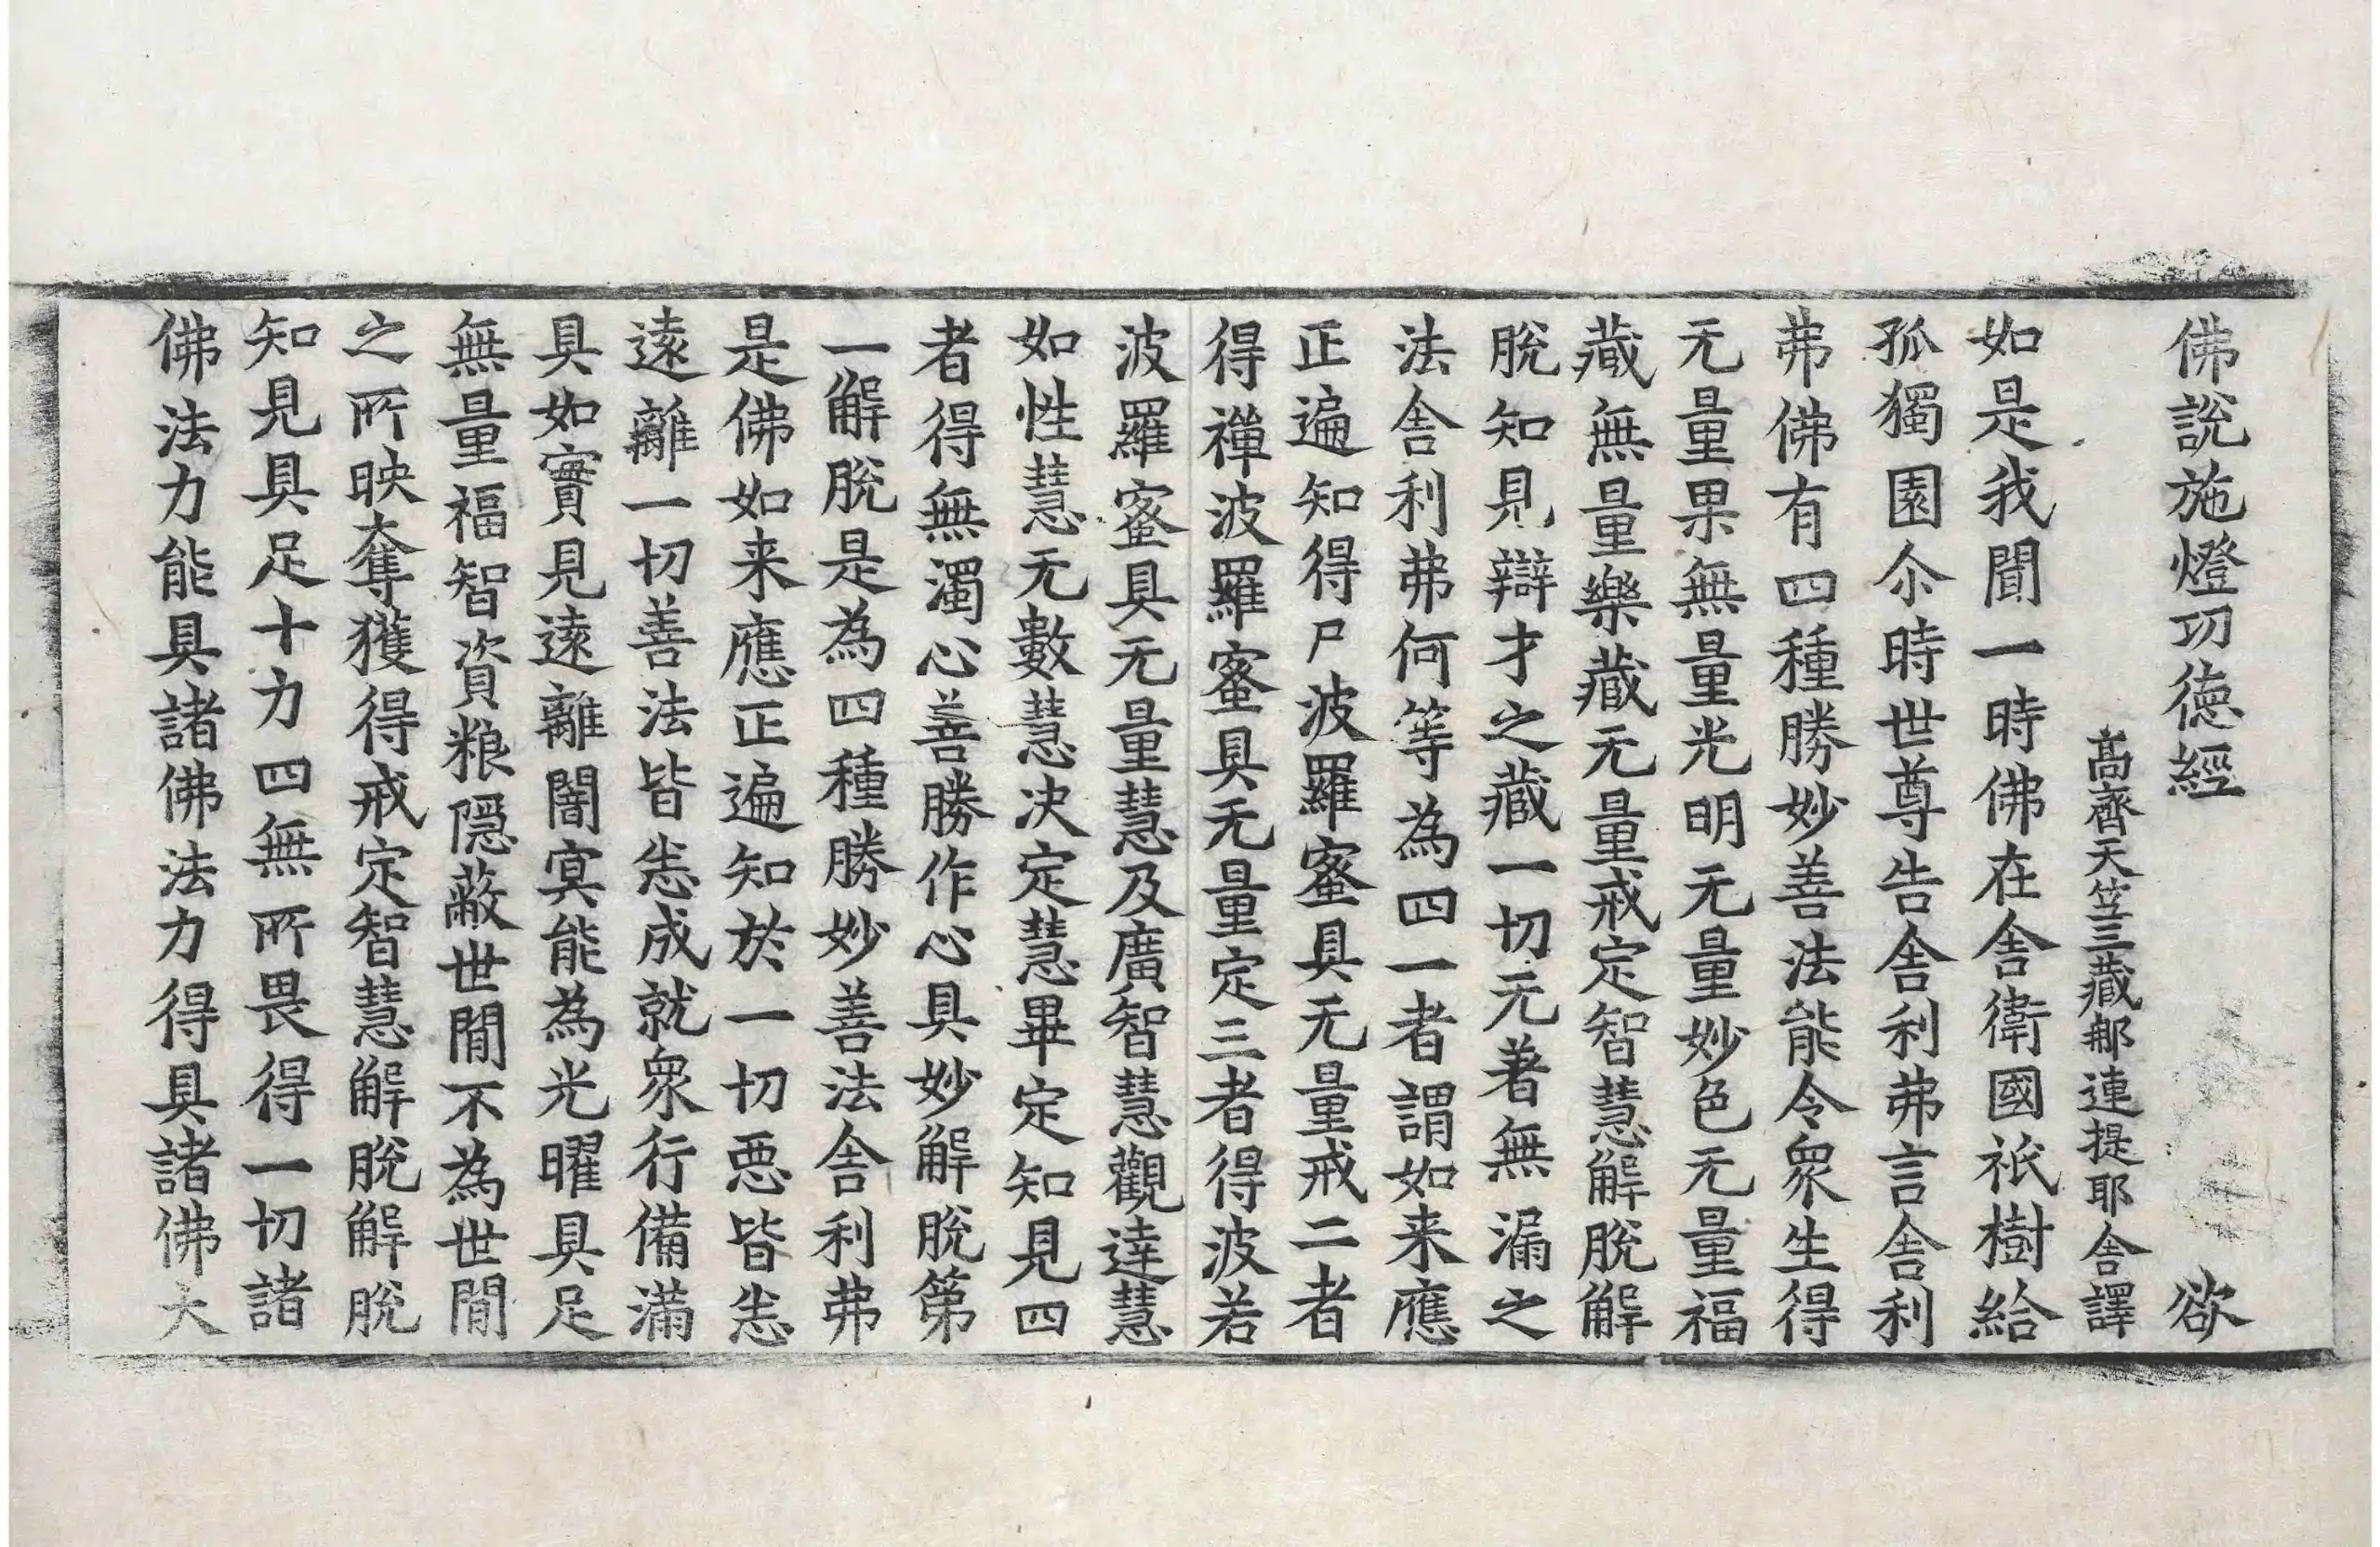 佛說施燈功德經 欲
高齊天笠三藏郍連提耶舍譯
如是我聞一時佛在舍衛國祇樹給
孤獨園尒時世尊告舍利弗言舍利
弗佛有四種勝妙善法能令衆生得
无量果無量光明无量妙色无量福
藏無量樂藏无量戒定智慧解脫解
脫知見辯才之藏一切无著無漏之
法舍利弗何等為四一者謂如来應
正遍知得尸波羅蜜具无量戒二者
得禪波羅蜜具无量定三者得波若
波羅蜜具无量慧及廣智慧觀達慧
如性慧无數慧決定慧畢定知見四
者得無濁心善勝作心具妙解脫第
一解脫是為四種勝妙善法舍利弗
是佛如来應正遍知於一切惡皆悉
遠離一切善法皆悉成就衆行備滿
具如實見遠離闇冥能為光曜具足
無量福智資粮隱蔽世間不為世間
之所映奪獲得戒定智慧解脫解脫
知見具足十力四無所畏得一切諸
佛法力能具諸佛法力得具諸佛大